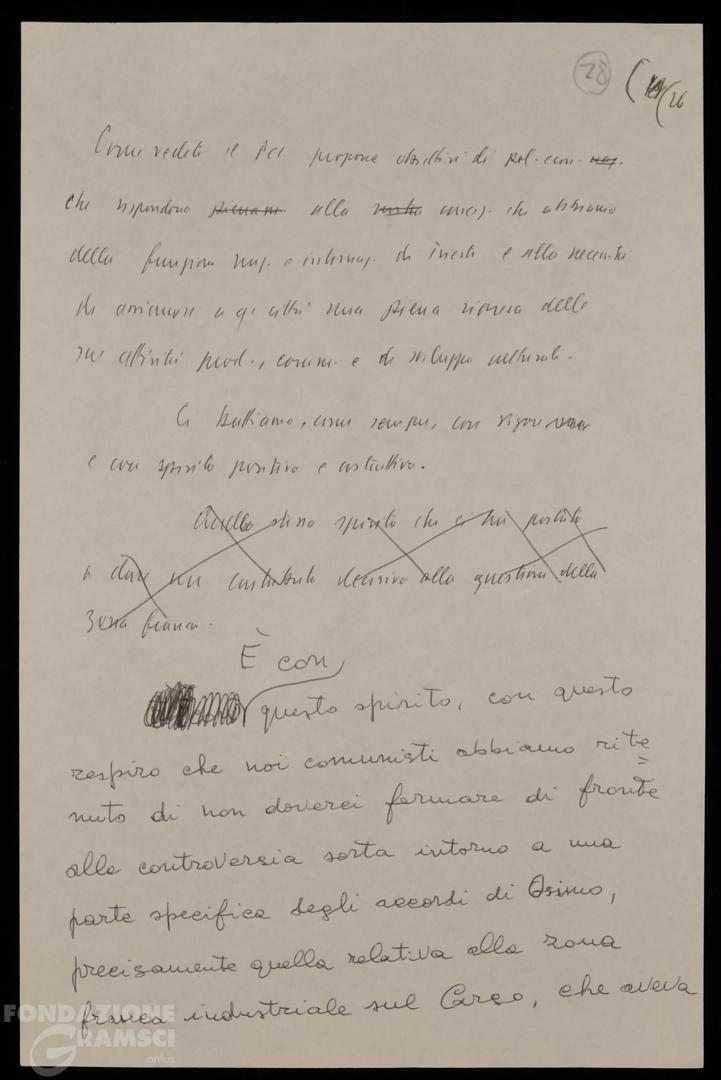 28 (26
Come vedete il PCI propone obiettivi di pol. com. naz.
che rispondono pienam. alla nostra concez. che abbiamo
della funzione naz. e internaz. di Trieste e alla necessità
di assicurare a q. città una piena ripresa delle
sue attività prod., comm. e di sviluppo culturale.
Ci battiamo, come sempre, con rigore
e con spirito positivo e costruttivo.
Quello stesso spirito che ci ha portato
a dare un contributo decisivo alla questione della
Zona franca.
È con
questo spirito, con questo
respiro che noi comunisti abbiamo rite=
nuto di non doverci fermare di fronte
alla controversia sorta intorno a una
parte specifica degli accordi di Osimo,
precisamente quella relativa alla zona
franca industriale sul Carso, che aveva
FONDAZIONE
GRAMSCI
onlus